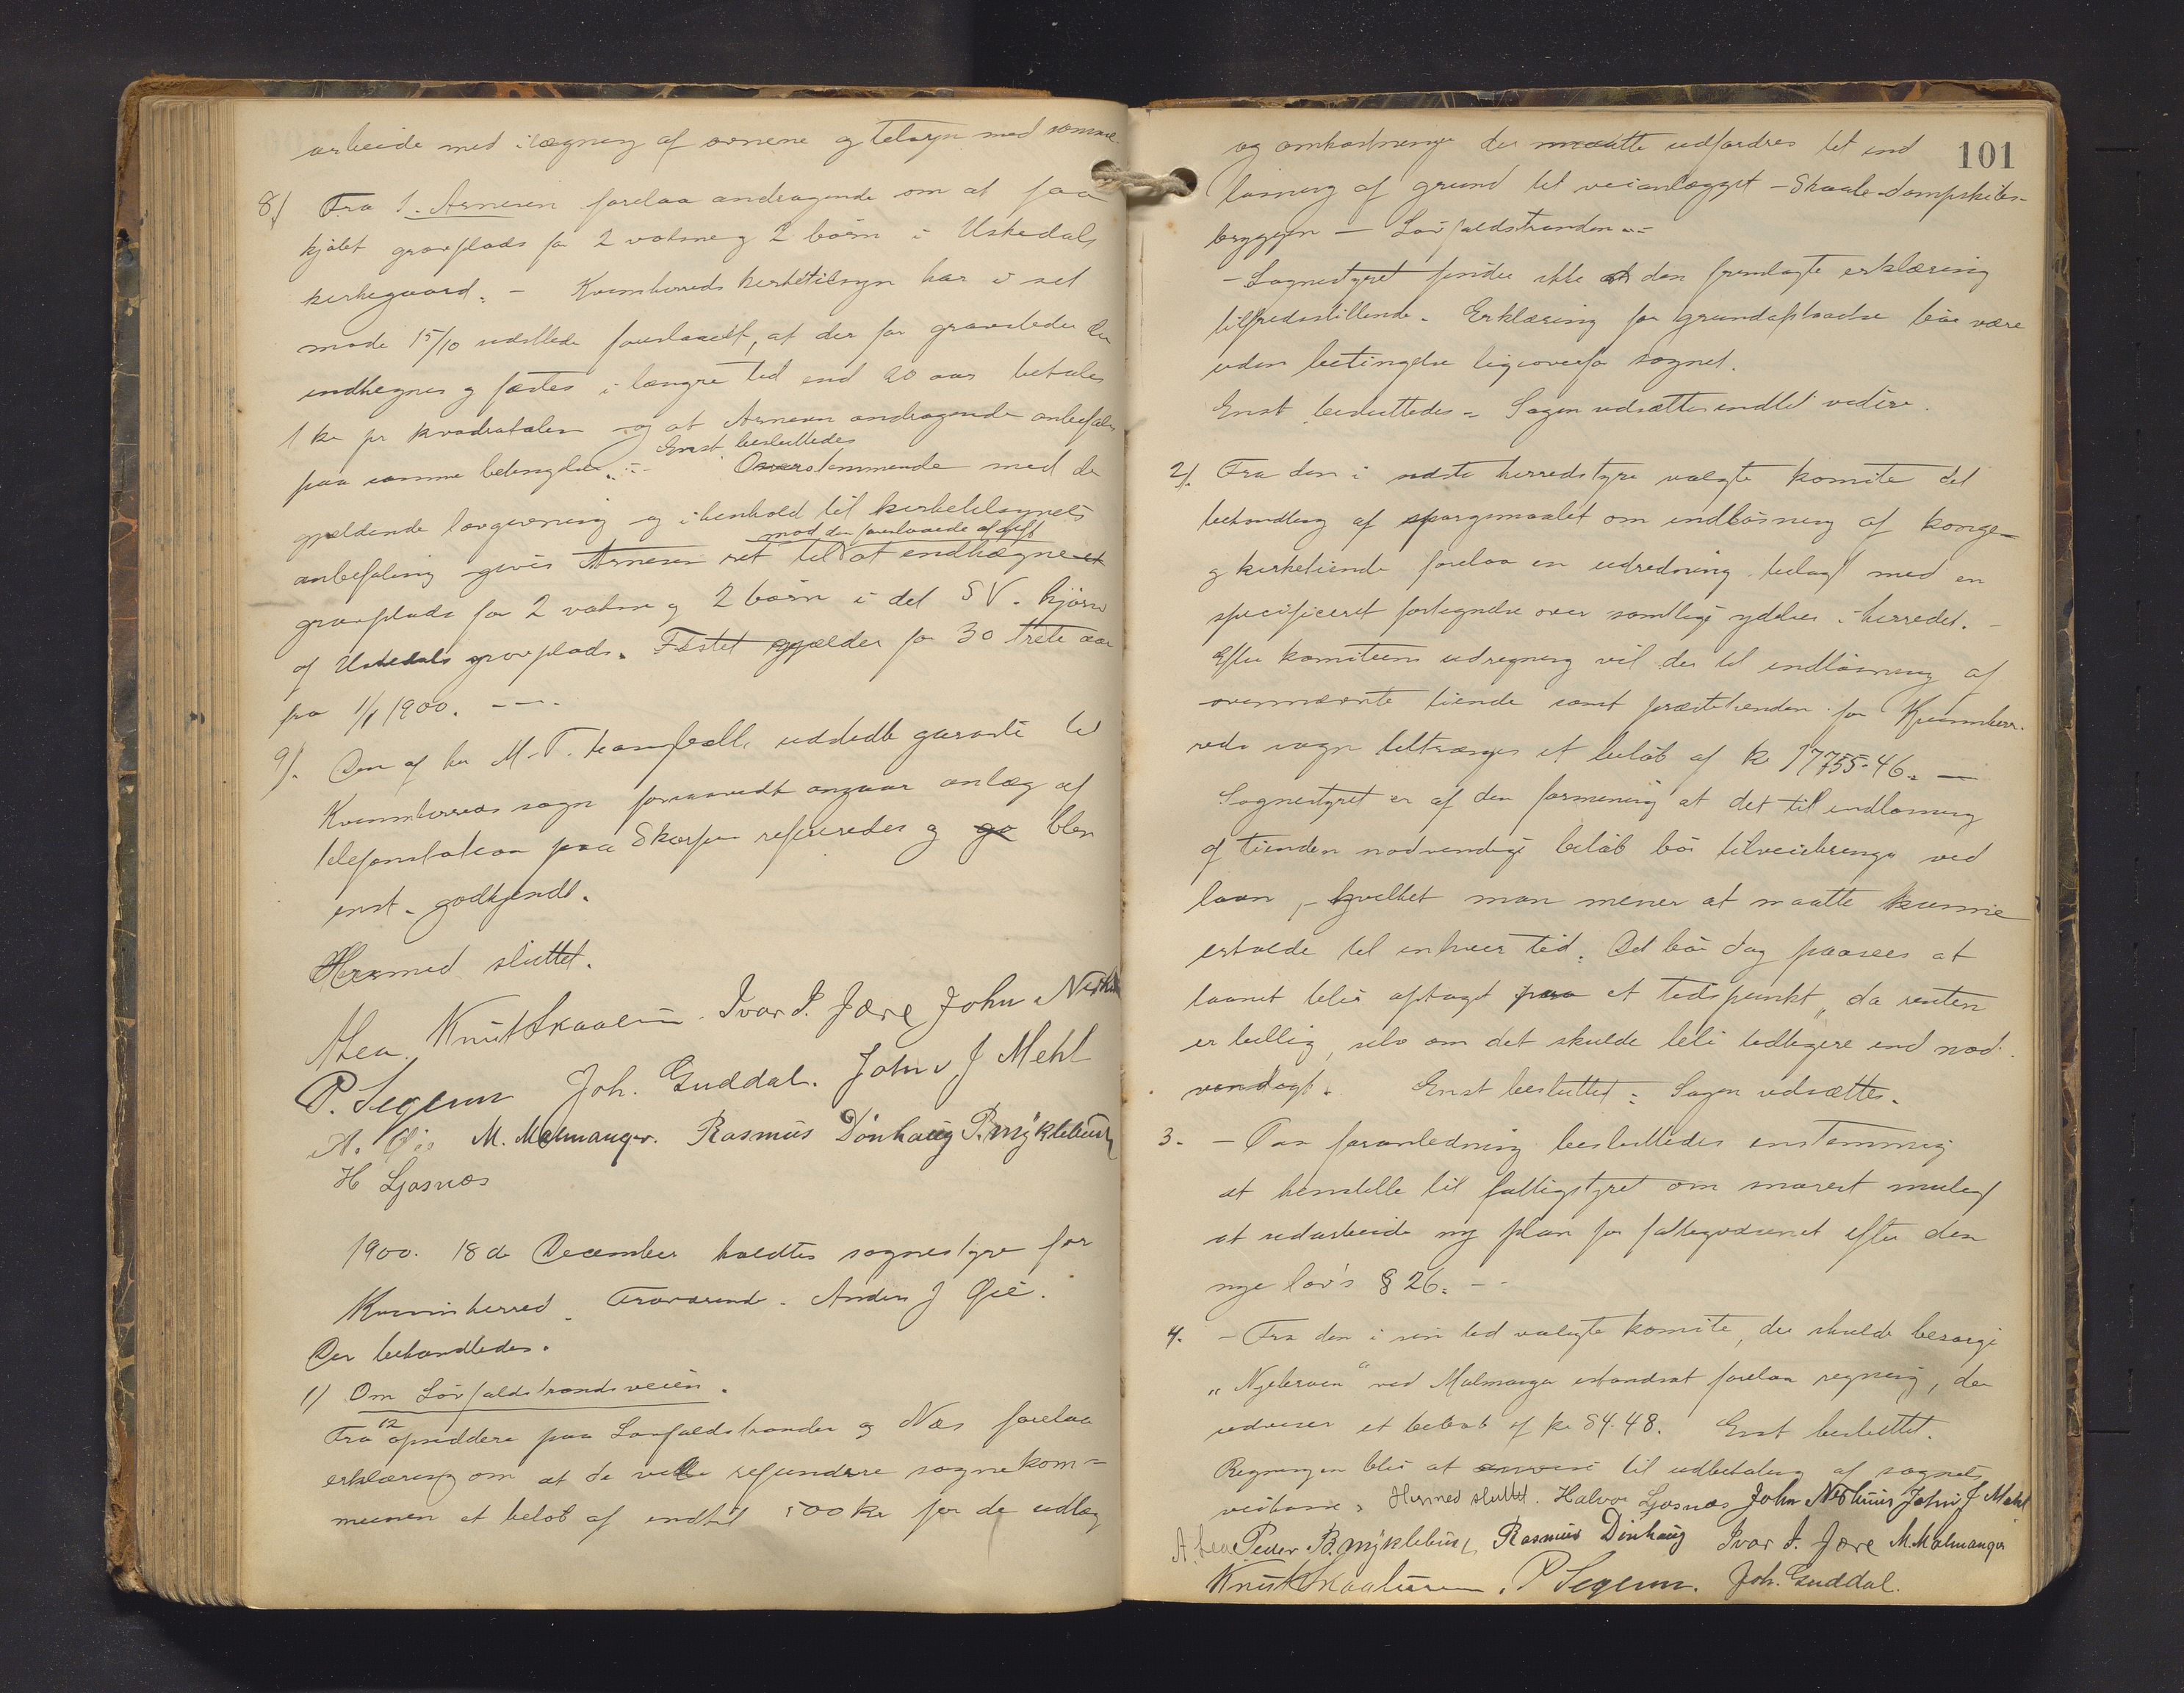 arbeide med ilægning af ovnene og tilsyn med samme.
8) Fra S. Arnesen forelaa andragende om at faa
kjøbt gravplads for 2 voksne og 2 børn i Uskedals
kirkegaard. - Kvinnherreds kirketilsyn har i sit
møde 15/10 sidstlede foreslaaet, at der for gravsteder der
indhegnes og fæstes i længre tid end 20 aar betales
1 kr pr kvadratalen og at Arnesens andragende anbefales
paa samme betingelser. -
Enst. besluttedes
Overstemmende med de
gjældende lovgivning og i henhold til kirketilsynets
mod den foreslaaede afgift
anbefaling gives Arnesen ret til at indhægne et
gravplads for 2 voksne og 2 børn i det SV. hjørne
af Uskedals gravplads. Fæstet gjælder for 30 treti aar
fra 1/1 1900. - -
9). Den af hr M. T. udstedte garanti til
Kvinnherreds sogn forsaavidt angaar anlæg af
telefonstation paa Skarpen refereredes og go blev
enst. godkjendt.
Hermed sluttet.
A Lea Knut Skaaluren. Ivar I. Jære John Neshuus
P. Segenn Joh. Guddal. John J Mehl
A. Øie M. Malmanger. Rasmus Dönhaug P. Myklebust
H Ljosnæs
1900. 18de December holdtes sognestyre for
Kvinnherred. Fraværende. Anders J Øie.
Der behandledes.
1) Om Løvfaldstrandsveien.
12
Fra opsiddere paa Løvfaldstranden og Næs forelaa
erklæring om at de ville refundere sognekom=
munen et beløb af indtil 500 kr for de udlæg
101
og omkostninger der maatte udfordres til ind
løsning af grund til veianlægget - Skaale - dampskibs-
bryggen - Løvfaldstranden. -
- Sognestyret finder ikke at den fremlagte erklæring
tilfredsstillende. Erklæring for grundafstaaelse bør være
uden betingelse ligeoverfor sognet.
Enst. besluttedes = Sagen udsættes indtil videre.
2). Fra den i sidste herredstyre valgte komite til
behandling af spørgsmaalet om indløsning af konge-
og kirketiende forelaa en udredning bilagt med en
specificeret fortegnelse over samtlige ydelser i herredet. -
Efter komiteens udregning vil der til indløsning af
ovennævnte tiende samt præstetienden for Kvinnher-
reds sogn tiltrænges et beløb af kr 17755.46. -
Sognestyret er af den formening at det til indløsning
af tienden nødvendige beløb bør tilveiebringes ved
laan, - hvilket man mener at maatte kunne
erholde til enhver tid. Det bør dog paasees at
laanet blir optaget paa et tidspunkt, da renten
er billig, selv om det skulde bli tidligere end nød-
vendigt. Enst besluttet: Sagen udsættes.
3. - Paa foranledning besluttedes enstemmig
at henstille til fattigstyret om snarest mulig
at udarbeide ny plan for fattigvæsenet efter den
nye lov's § 26. - -
4. - Fra den i sin tid valgte komite, der skulde besørge
"Nyebroen" ved Malmanger istandsat forelaa regning, der
udviser et beløb af kr 84.48. Enst besluttet.
Regningen blir at anvise til udbetaling af sognets
veikasse. Hermed sluttet. Halvor Ljosnæs John Neshuus John J Mehl
A. Lea Peder B. Myklebust, Rasmus Dönhaug Ivar I. Jære M. Malmanger
Knut Skaaluren. P Segenn. Joh. Guddal.